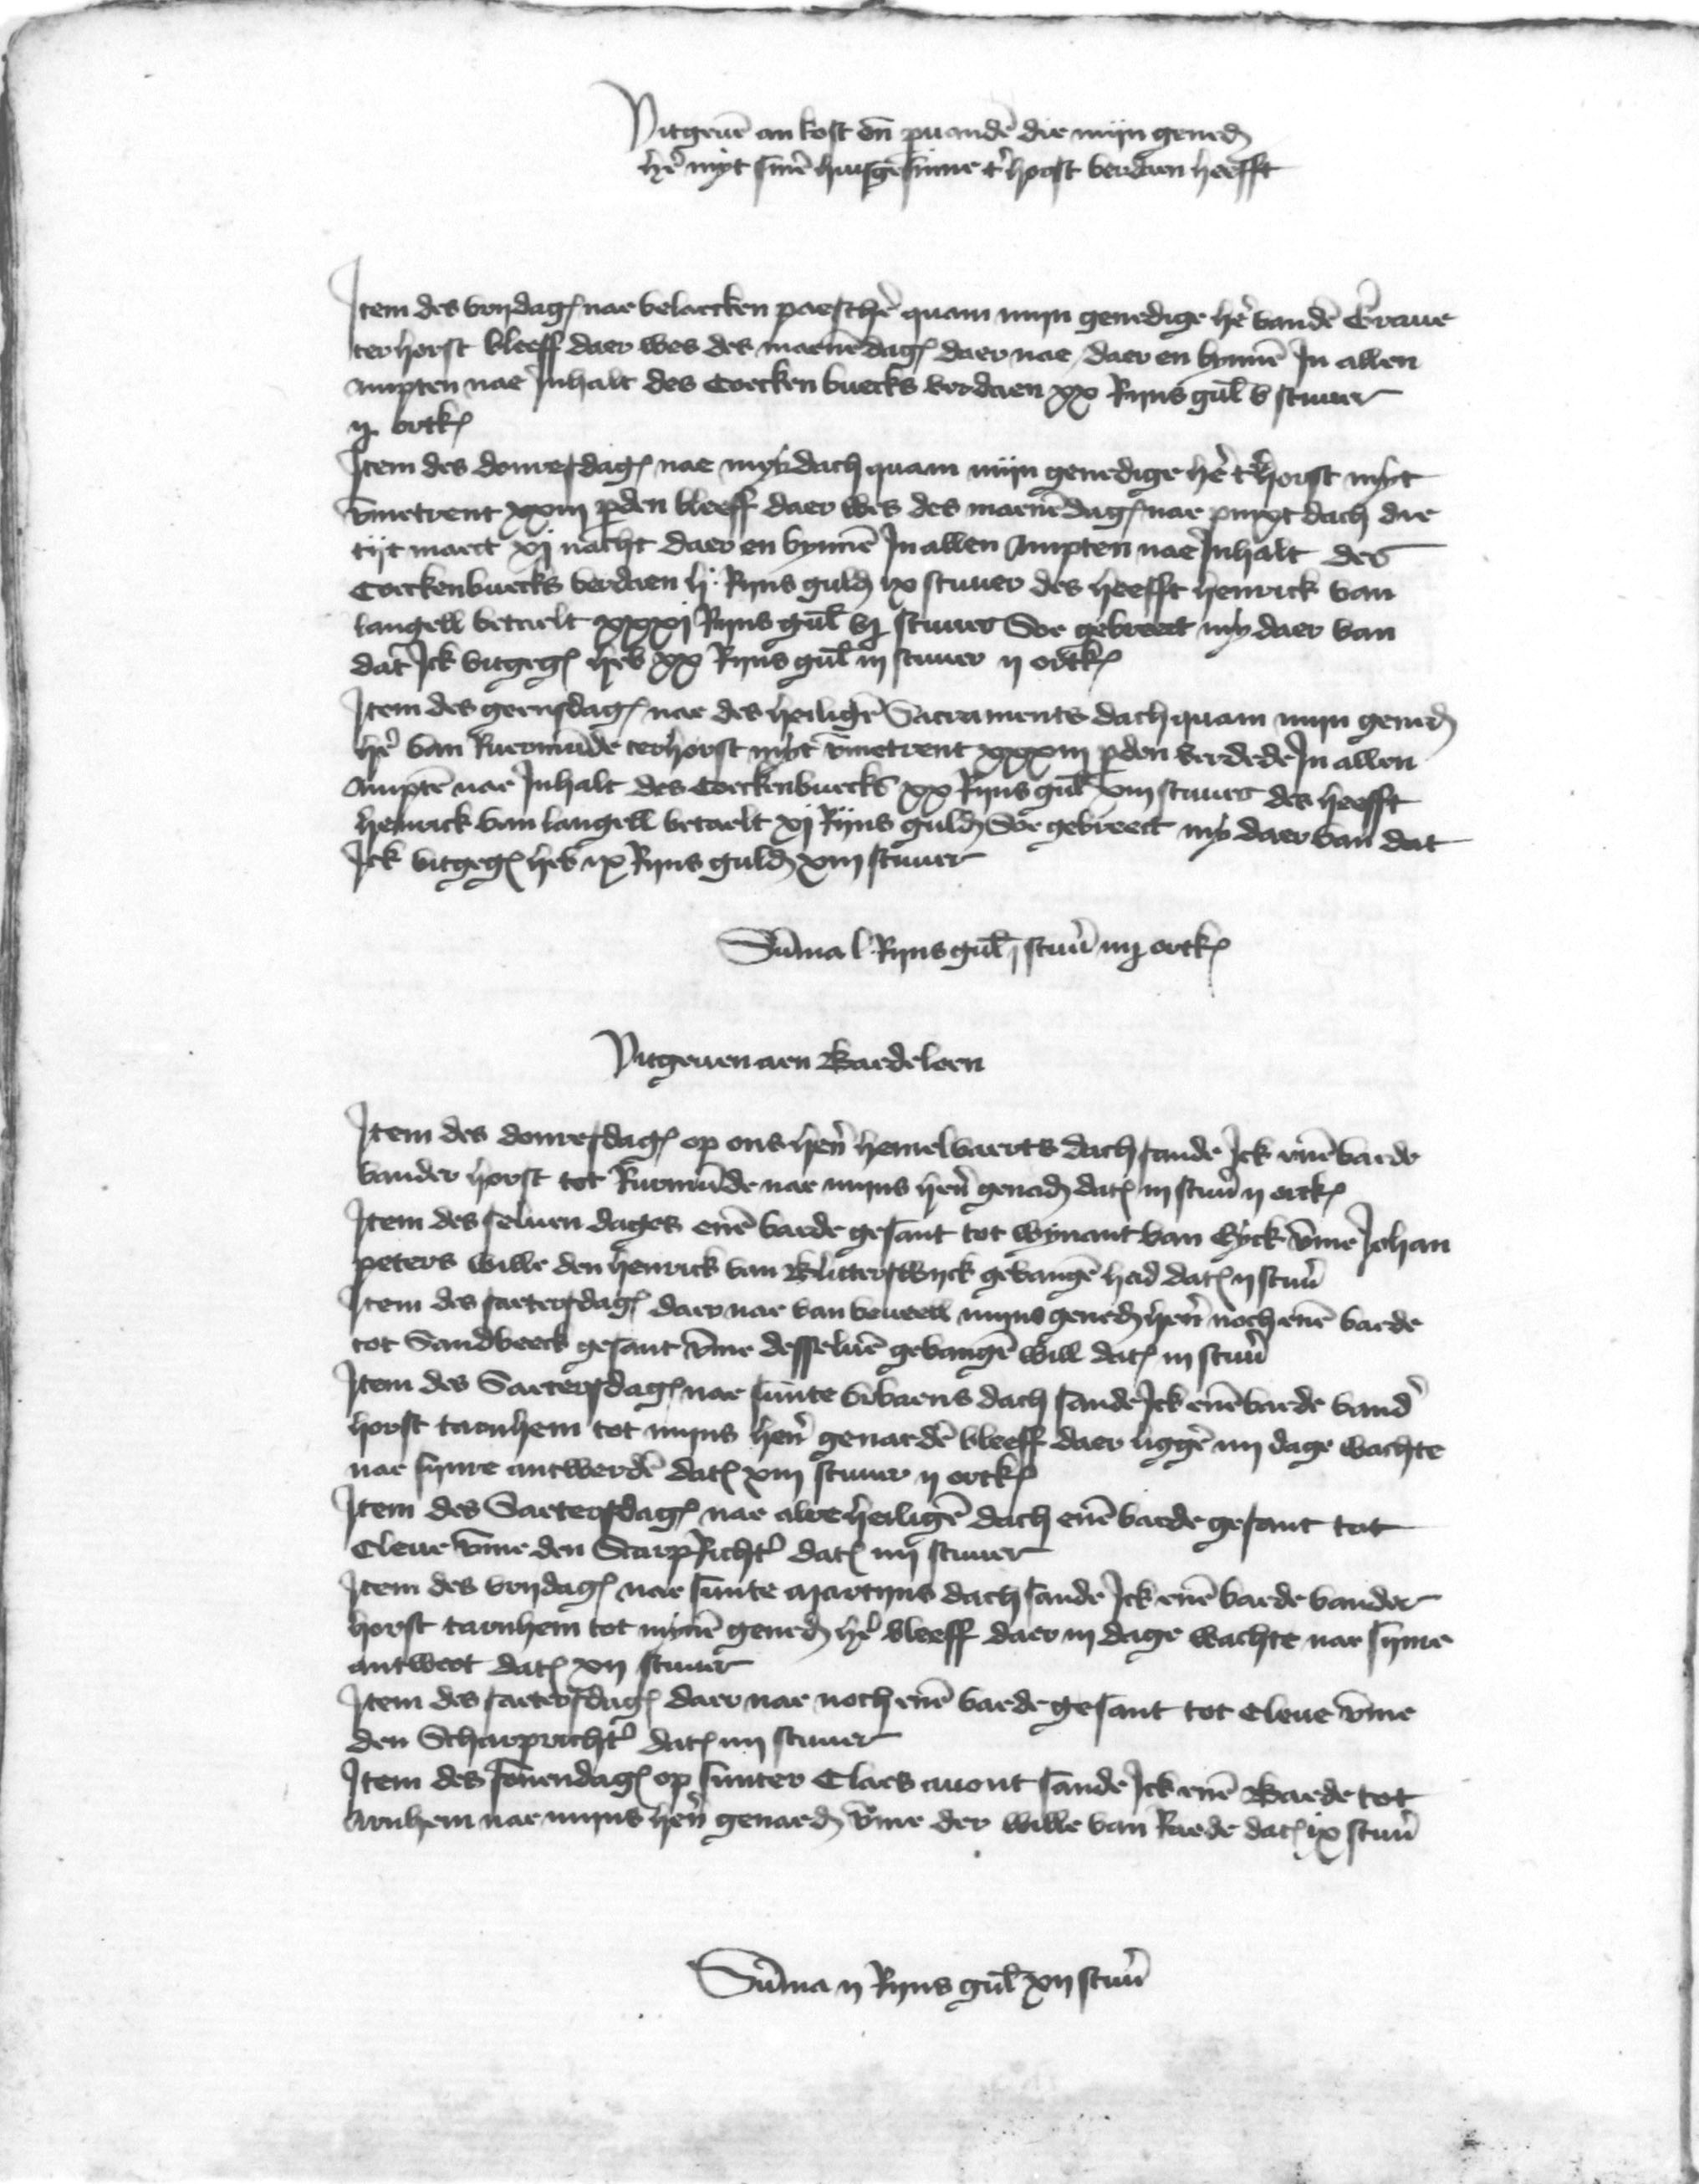 Vitgeuē an kost eñ puandē die mijn gened
hē myt sinē huisgesinne t' horst verdaen heefft
Item des vrydag nae belaecken paeschē quam mijn genedige hē vandē Graue
ter horst bleeff daer wes des maenēdag daer nae daer en bynnē In allen
ampten nae Inhalt des Coecken buecks verdaen xx Rijns gul v stuuer
ij ortk
Item des donresdag nae meydach quam mijn genedige hē t' horst myt
vmetrent xxiij perden bleeff daer wes des maenēdag nae pinxt dach die
tijt maect xj nacht daer en bynnē In allen Ampten nae Inhalt des
Coeckenbuecks verdaen lj Rijns guld ix stuuer des heefft henrick van
langell betaelt xxxj Rijns gul vj stuuer Soe gebreect my daer van
dat Ick vitgeg heb xx Rijns gul iij stuuer ij ortk
Item des geensdag nae des heiligē Sacraments dach quam mijn gened
hē van Ruermunde ter horst myt vmetrent xxxiij perden verdede In allen
Amptē nae Inhalt des Coeckenbuecks xx Rijns gul xiij stuuer des heefft
henrick van langell betaelt xj Rijns guld Soe gebreect my daer van dat
Ick vitgeg heb ix Rijns guld xiij stuuer
Sūma l Rijns gul j stuū iiij ortk
Vitgeuen aen Baedeloen
Item des donresdag op ons hen hemelvaerts dach sande Ick enē baede
vander horst tot Rurmunde nae mijns hen genad dat iij stuū ij ortk
Item des seluen dages enē baede gesant tot wynant van Eyck vme Johan
peters wille den henrick van Blitterswyck gevangē had dat ij stuū
Item des saetersdag daer nae van beueell mijns gened hen noch enē baede
tot Sandbeeck gesant vme desseluē gevangē will dat iij stuū
Item des Saetersdag nae sunte vrbaens dach sande Ick enē baede vand
horst tarnhem tot mijns hen genaedē bleeff daer liggē iiij dage wachte
nae sijnre antwerdē dat xiij stuuer ij ortk
Item des Saetersdag nae alre heiligē dach enē baede gesant tot
Cleue vme den Scarprichte dat iiij stuuer
Item des vrydag nae sunte Martijns dach sande Ick enē baede vander
horst tarnhem tot mynē gened hē bleeff daer iij dage wachte nae sijnre
antwort dat xij stuuer
Item des saetersdag daer nae noch enē baede gesant tot Cleue vme
den Scharprichte dat iiij stuuer
Item des sonnendag op sunter Claes auont sande Ick enē Baede tot
Arnhem nae mijns hen genaed vme der wille van Raede dat ix stuū
Sūma ij Rijns gul xij stuū